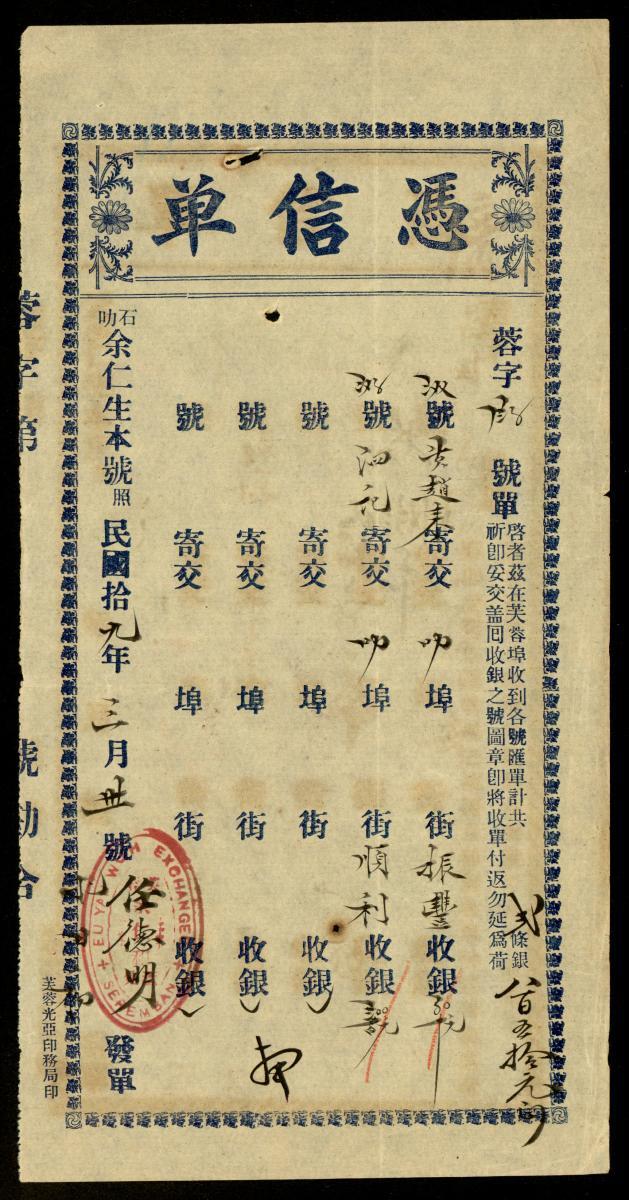 憑信单
蓉字 號單
啓者茲在芙蓉埠收到各號匯單計共 弍 條銀 八百五拾元
祈卽妥交盖囘收銀之號圖章卽將收單付返勿延爲荷
號 黃趙来 寄交 叻 埠 街 振豐 收銀
號 泗記 寄交 叻 埠 街 順利 收銀
號 寄交 埠 街 收銀
號 寄交 埠 街 收銀
號 寄交 埠 街 收銀
石叻 余仁生本號 照 民國拾九年 三月卅號 任德明 發單
EU YAN EXCHANGE
SEREMBAN
蓉字第 號勘合
芙蓉光亞印務局印